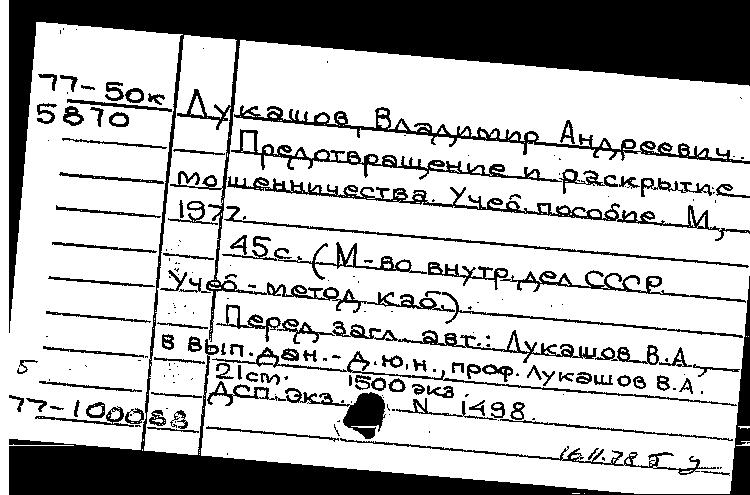 77-50к
5870
Лукашов, Владимир Андреевич.
Предотвращение и раскрытие
мошенничества. Учеб. пособие. М.,
1977.
45 с. (М-во внутр. дел СССР.
Учеб.-метод. каб.).
Перед загл. авт.: Лукашов В.А.,
в вып. дан. - д.ю.н., проф. Лукашов В.А.
21 см. 1500 экз.
ДСП. Экз. N 1498.
5
77-100083
16.11.78